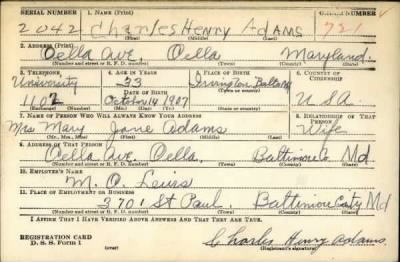 SERIAL NUMBER 1. NAME (Print) ORDER NUMBER
2042 Charles Henry Adams 721
(First) (Middle) (Last)
2. ADDRESS (Print)
Oella Ave. Oella Maryland
(Number and street or R. F. D. number) (Town) (County) (State)
3. TELEPHONE 4. AGE IN YEARS 5. PLACE OF BIRTH 6. COUNTRY OF CITIZENSHIP
University 33 Irvington Balto
DATE OF BIRTH (Town or county)
1102 October 14 1907 Md U S A
(Exchange) (Number) (Mo.) (Day) (Yr.) (State or country)
7. NAME OF PERSON WHO WILL ALWAYS KNOW YOUR ADDRESS 8. RELATIONSHIP OF THAT PERSON
Mrs Mary Jane Adams Wife
(Mr., Mrs., Miss) (First) (Middle) (Last)
9. ADDRESS OF THAT PERSON
Oella Ave. Oella, Baltimore Co Md.
(Number and street or R. F. D. number) (Town) (County) (State)
10. EMPLOYER'S NAME
M. O. Lewis
11. PLACE OF EMPLOYMENT OR BUSINESS
3701 St Paul. Baltimore City Md
(Number and street or R. F. D. number) (Town) (County) (State)
I AFFIRM THAT I HAVE VERIFIED ABOVE ANSWERS AND THAT THEY ARE TRUE.
REGISTRATION CARD
D. S. S. Form 1 (over) Charles Henry Adams.
(Registrant's signature)